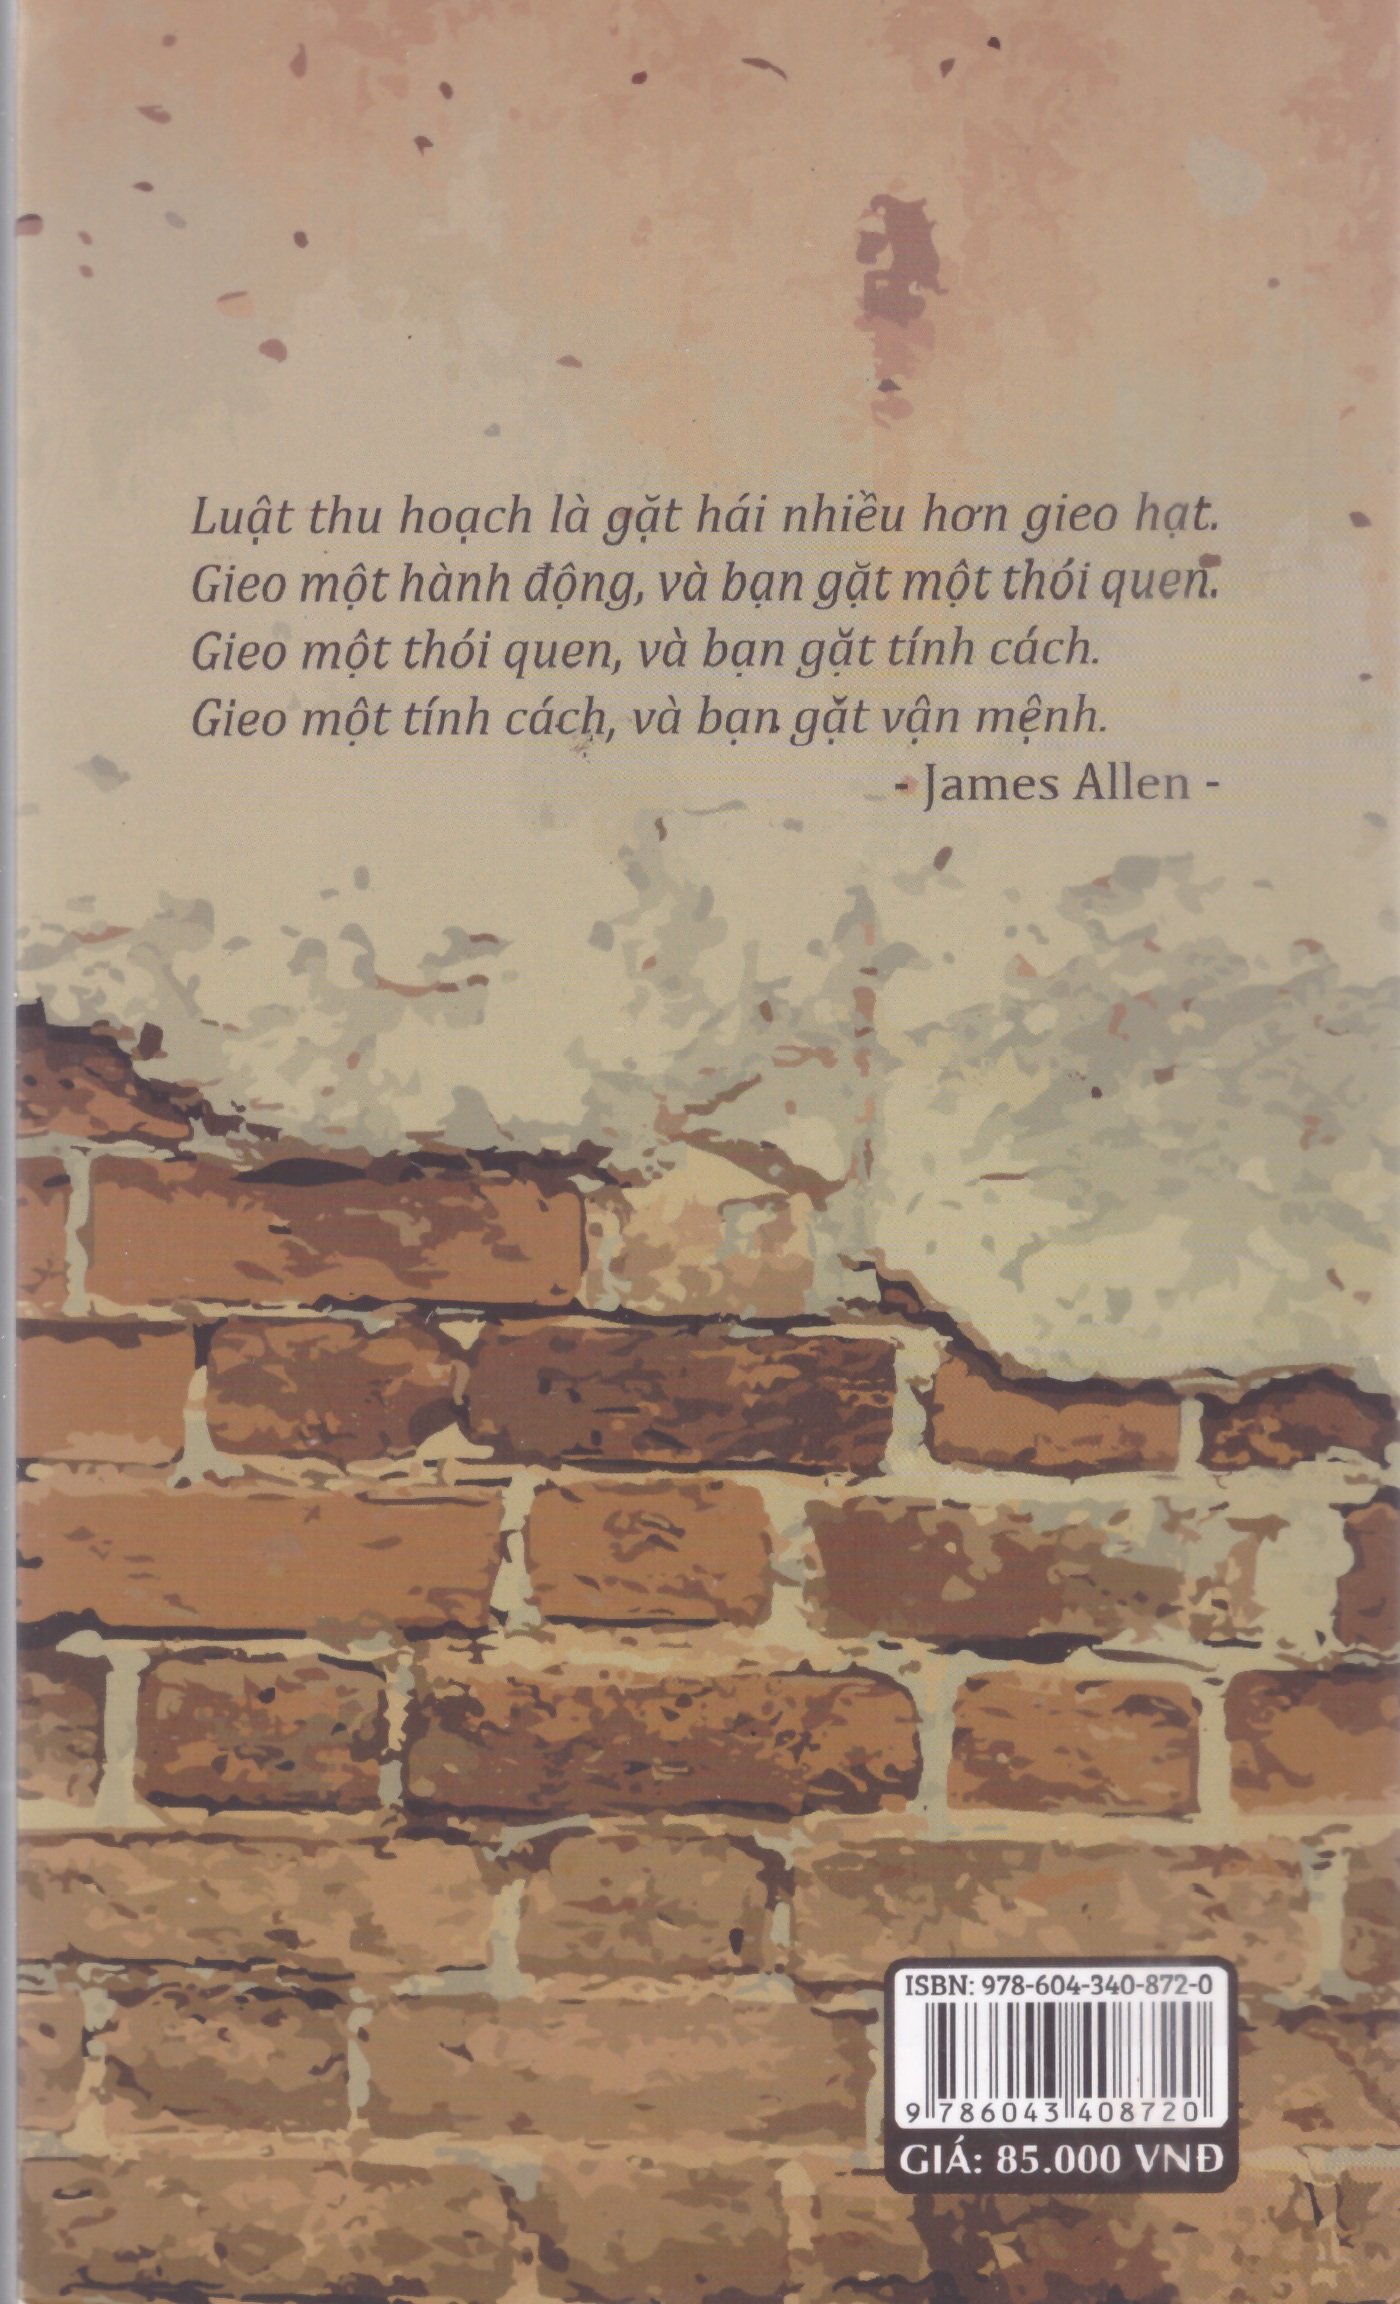 Luật thu hoạch là gặt hái nhiều hơn gieo hạt.
Gieo một hành động, và bạn gặt một thói quen.
Gieo một thói quen, và bạn gặt tính cách.
Gieo một tính cách, và bạn gặt vận mệnh.
- James Allen -
ISBN: 978-604-340-872-0
9 786043 408720
GIÁ: 85.000 VNĐ